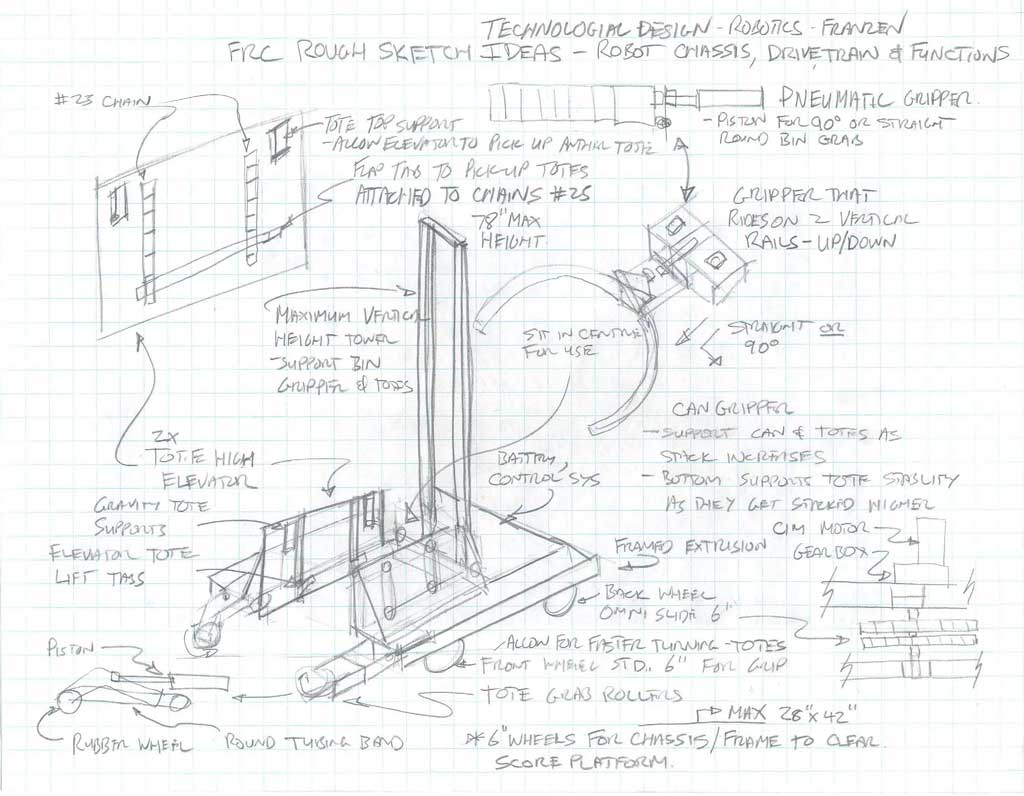 TECHNOLOGIAL DESIGN - ROBOTICS - FRANZEN
FRC ROUGH SKETCH IDEAS - ROBOT CHASSIS, DRIVETRAIN & FUNCTIONS
#25 CHAIN
TOTE TOP SUPPORT
- ALLOW ELEVATOR TO PICK UP ANOTHER TOTE
FLAP TAB TO PICKUP TOTES
ATTACHED TO CHAINS #25
PNEUMATIC GRIPPER
- PISTON FOR 90° OR STRAIGHT
ROUND BIN GRAB
GRIPPER THAT
RIDES ON 2 VERTICAL
RAILS - UP/DOWN
78" MAX
HEIGHT
MAXIMUM VERTICAL
HEIGHT TOWER
- SUPPORT BIN
GRIPPER & TOTES
SIT IN CENTRE
FOR USE
STRAIGHT OR
90°
CAN GRIPPER
- SUPPORT CAN & TOTES AS
STACK INCREASES
- BOTTOM SUPPORTS TOTE STABILITY
AS THEY GET STACKED HIGHER
2X
TOTE HIGH
ELEVATOR
GRAVITY TOTE
SUPPORTS
ELEVATOR TOTE
LIFT TABS
BATTERY,
CONTROL SYS
FRAMED EXTRUSION
CIM MOTOR
GEARBOX
BACK WHEEL
OMNI SLIDE 6"
- ALLOW FOR FASTER TURNING - TOTES
FRONT WHEEL STD. 6" FOR GRIP
TOTE GRAB ROLLERS
PISTON
RUBBER WHEEL
ROUND TUBING BAND
MAX 28" X 42"
* 6" WHEELS FOR CHASSIS/FRAME TO CLEAR
SCORE PLATFORM.